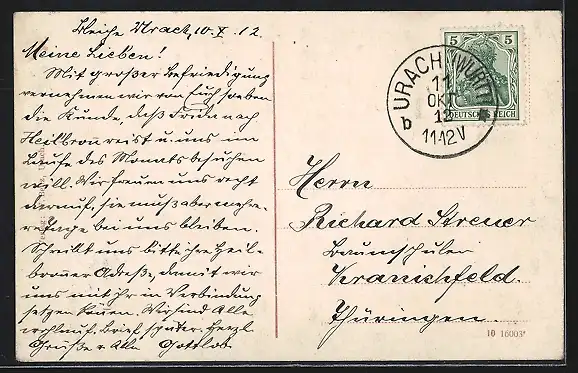 Bleiche Urach, 10.X.12
Meine Lieben!
Mit großer Befriedigung
vernehmen wir von Euch soeben
die Kunde, daß Frida nach
Heilbronn reist u. uns im
Laufe des Monats besuchen
will. Wir freuen uns recht
darauf, sie muß aber mehre-
re Tage bei uns bleiben.
Schreibt uns bitte ihre Heil-
bronner Adreße, damit wir
uns mit ihr in Verbindung
setzen können. Wir sind Alle
wohlauf. Brief später. Herzl
Grüße v. Alln Gottlob
5 5
DEUTSCHES REICH
URACH (WÜRTT)
11
OKT
12
b
11-12V
Herrn
Richard Streuer
Baumschulen
Kranichfeld
Thüringen
10 16003*